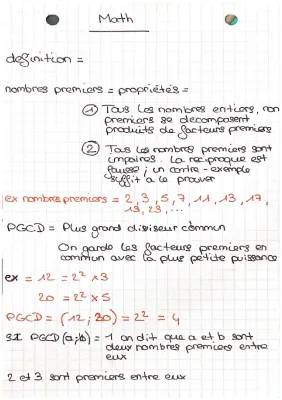 Math
définition =
nombres premiers = propriétés =
① Tous les nombres entiers, non
premiers se décomposent
produits de facteurs premiers
② Tous les nombres premiers sont
impaires. La réciproque est
fausse ; un contre-exemple
suffit a le prouver
ex nombres premiers = 2, 3, 5, 7, 11, 13, 17,
19, 23, ...
PGCD = Plus grand diviseur commun
On garde les facteurs premiers en
commun avec la plus petite puissance
ex = 12 = 2² x 3
20 = 2² x 5
PGCD = (12 ; 20) = 2² = 4
SI PGCD (a;b) = 1 on dit que a et b sont
deux nombres premiers entre
eux
2 et 3 sont premiers entre eux